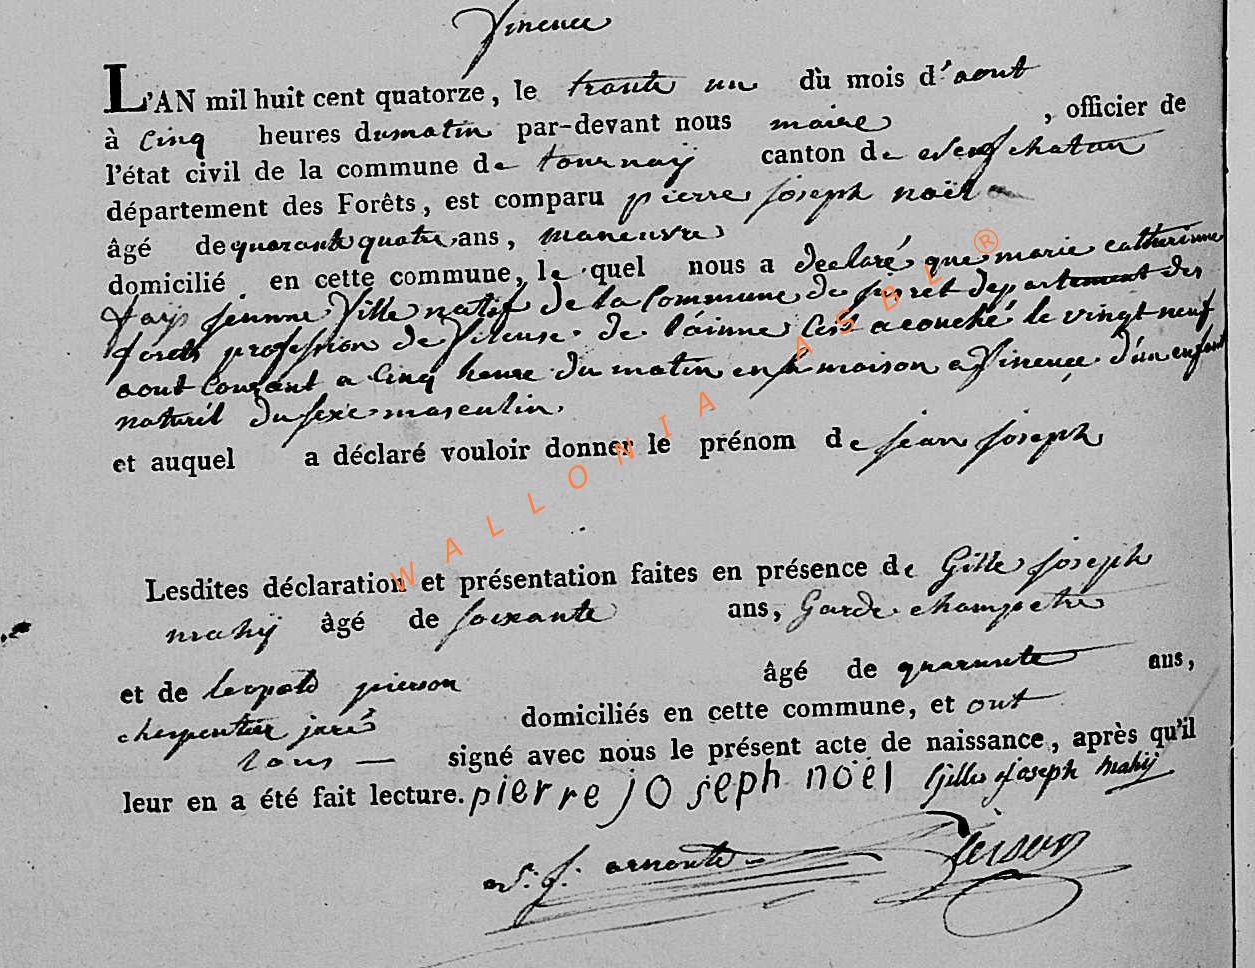 Vinence
L'AN mil huit cent quatorze, le trante un du mois d'aout
à Cinq heures du matin par-devant nous maire , officier de
l'état civil de la commune de tournay canton de neufchatau
département des Forêts, est comparu pierre joseph noël
âgé de quarante quatre ans, maneuvre
domicilié en cette commune, le quel nous a declaré que marie catherinne
fays jeunne fille natif de la Commune de departement des
forets profession de fileuse de lainne cest acouché le vingt neuf
aout courant a Cinq heure du matin en sa maison a Vinence d'un enfant
naturél du sexe masculin.
et auquel a déclaré vouloir donner le prénom de jean joseph
Lesdites déclaration et présentation faites en présence de Gille joseph
mahy âgé de soixante ans, Garde champetre
et de leopold pierson âgé de quarante ans,
cherpentier juré domiciliés en cette commune, et ont
tous signé avec nous le présent acte de naissance, après qu'il
leur en a été fait lecture. pierre joseph noel Gille joseph mahy
n: j: arnoute Pierson
WALLONIA ASBL ®